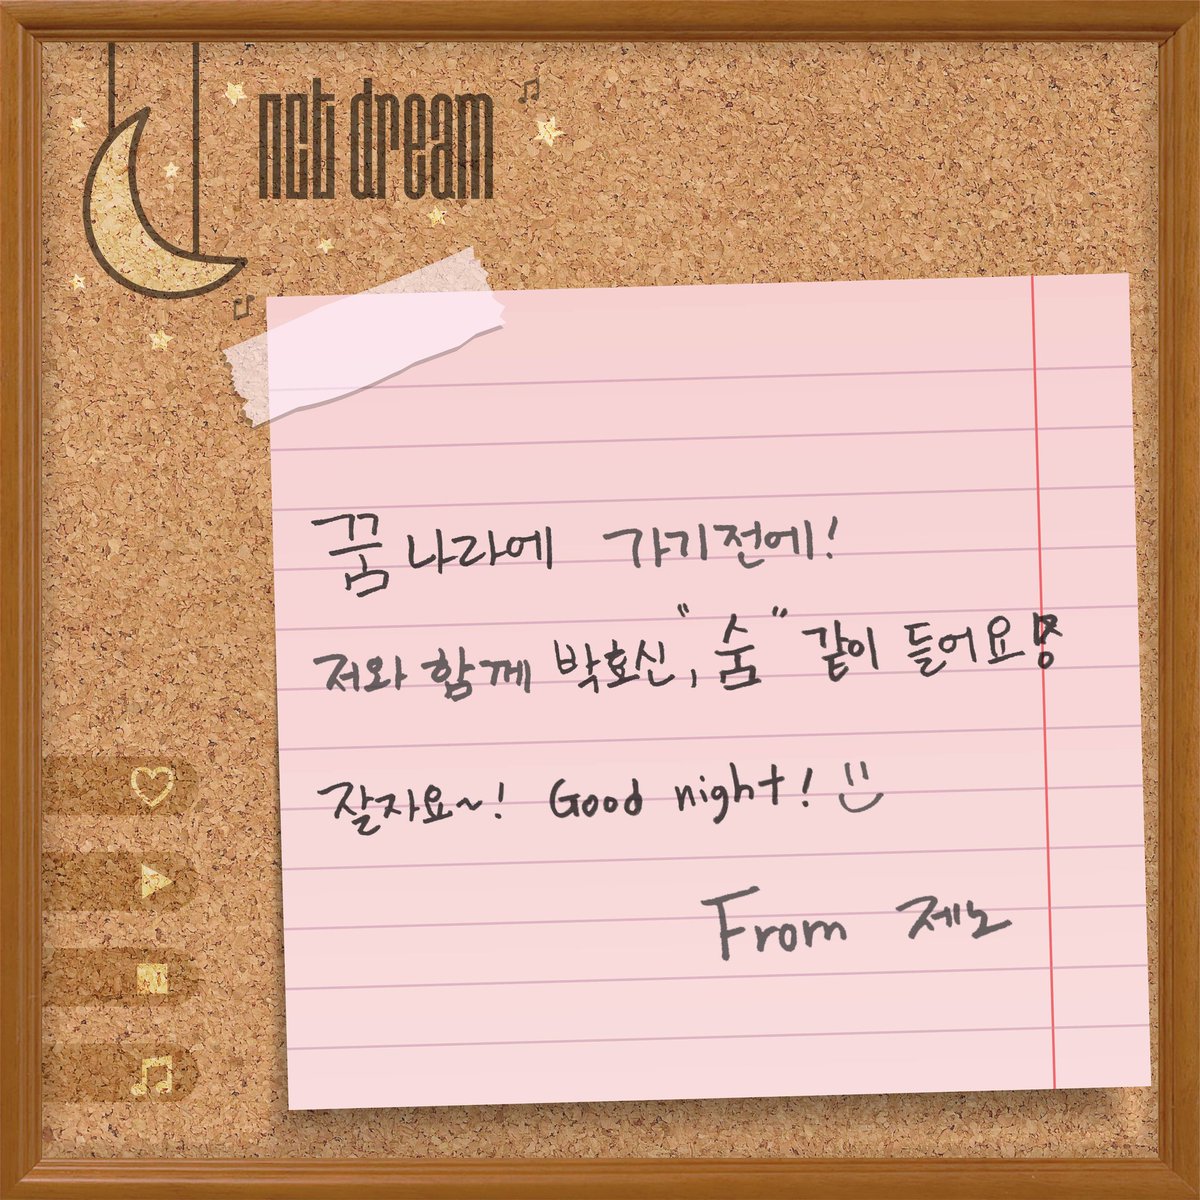 nct dream
꿈나라에 가기전에!
저와 함께 박효신, "숨" 같이 들어요!
잘자요~! Good night!
From 제노